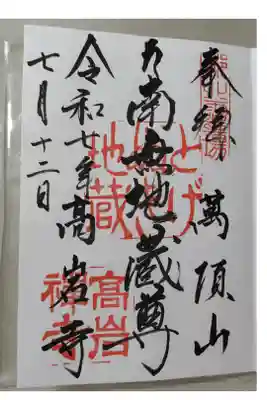 奉
萬頂山
南無地蔵尊
令和七年
高岩寺
七月十二日
とげ
地蔵
高岩
禅寺